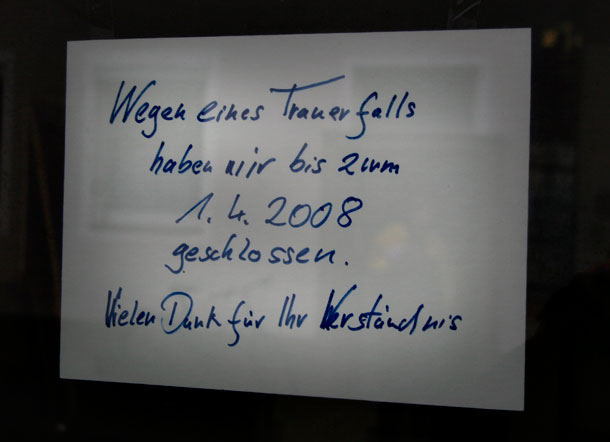 Wegen eines Trauerfalls
haben wir bis zum
1.4.2008
geschlossen.
Vielen Dank für Ihr Verständnis